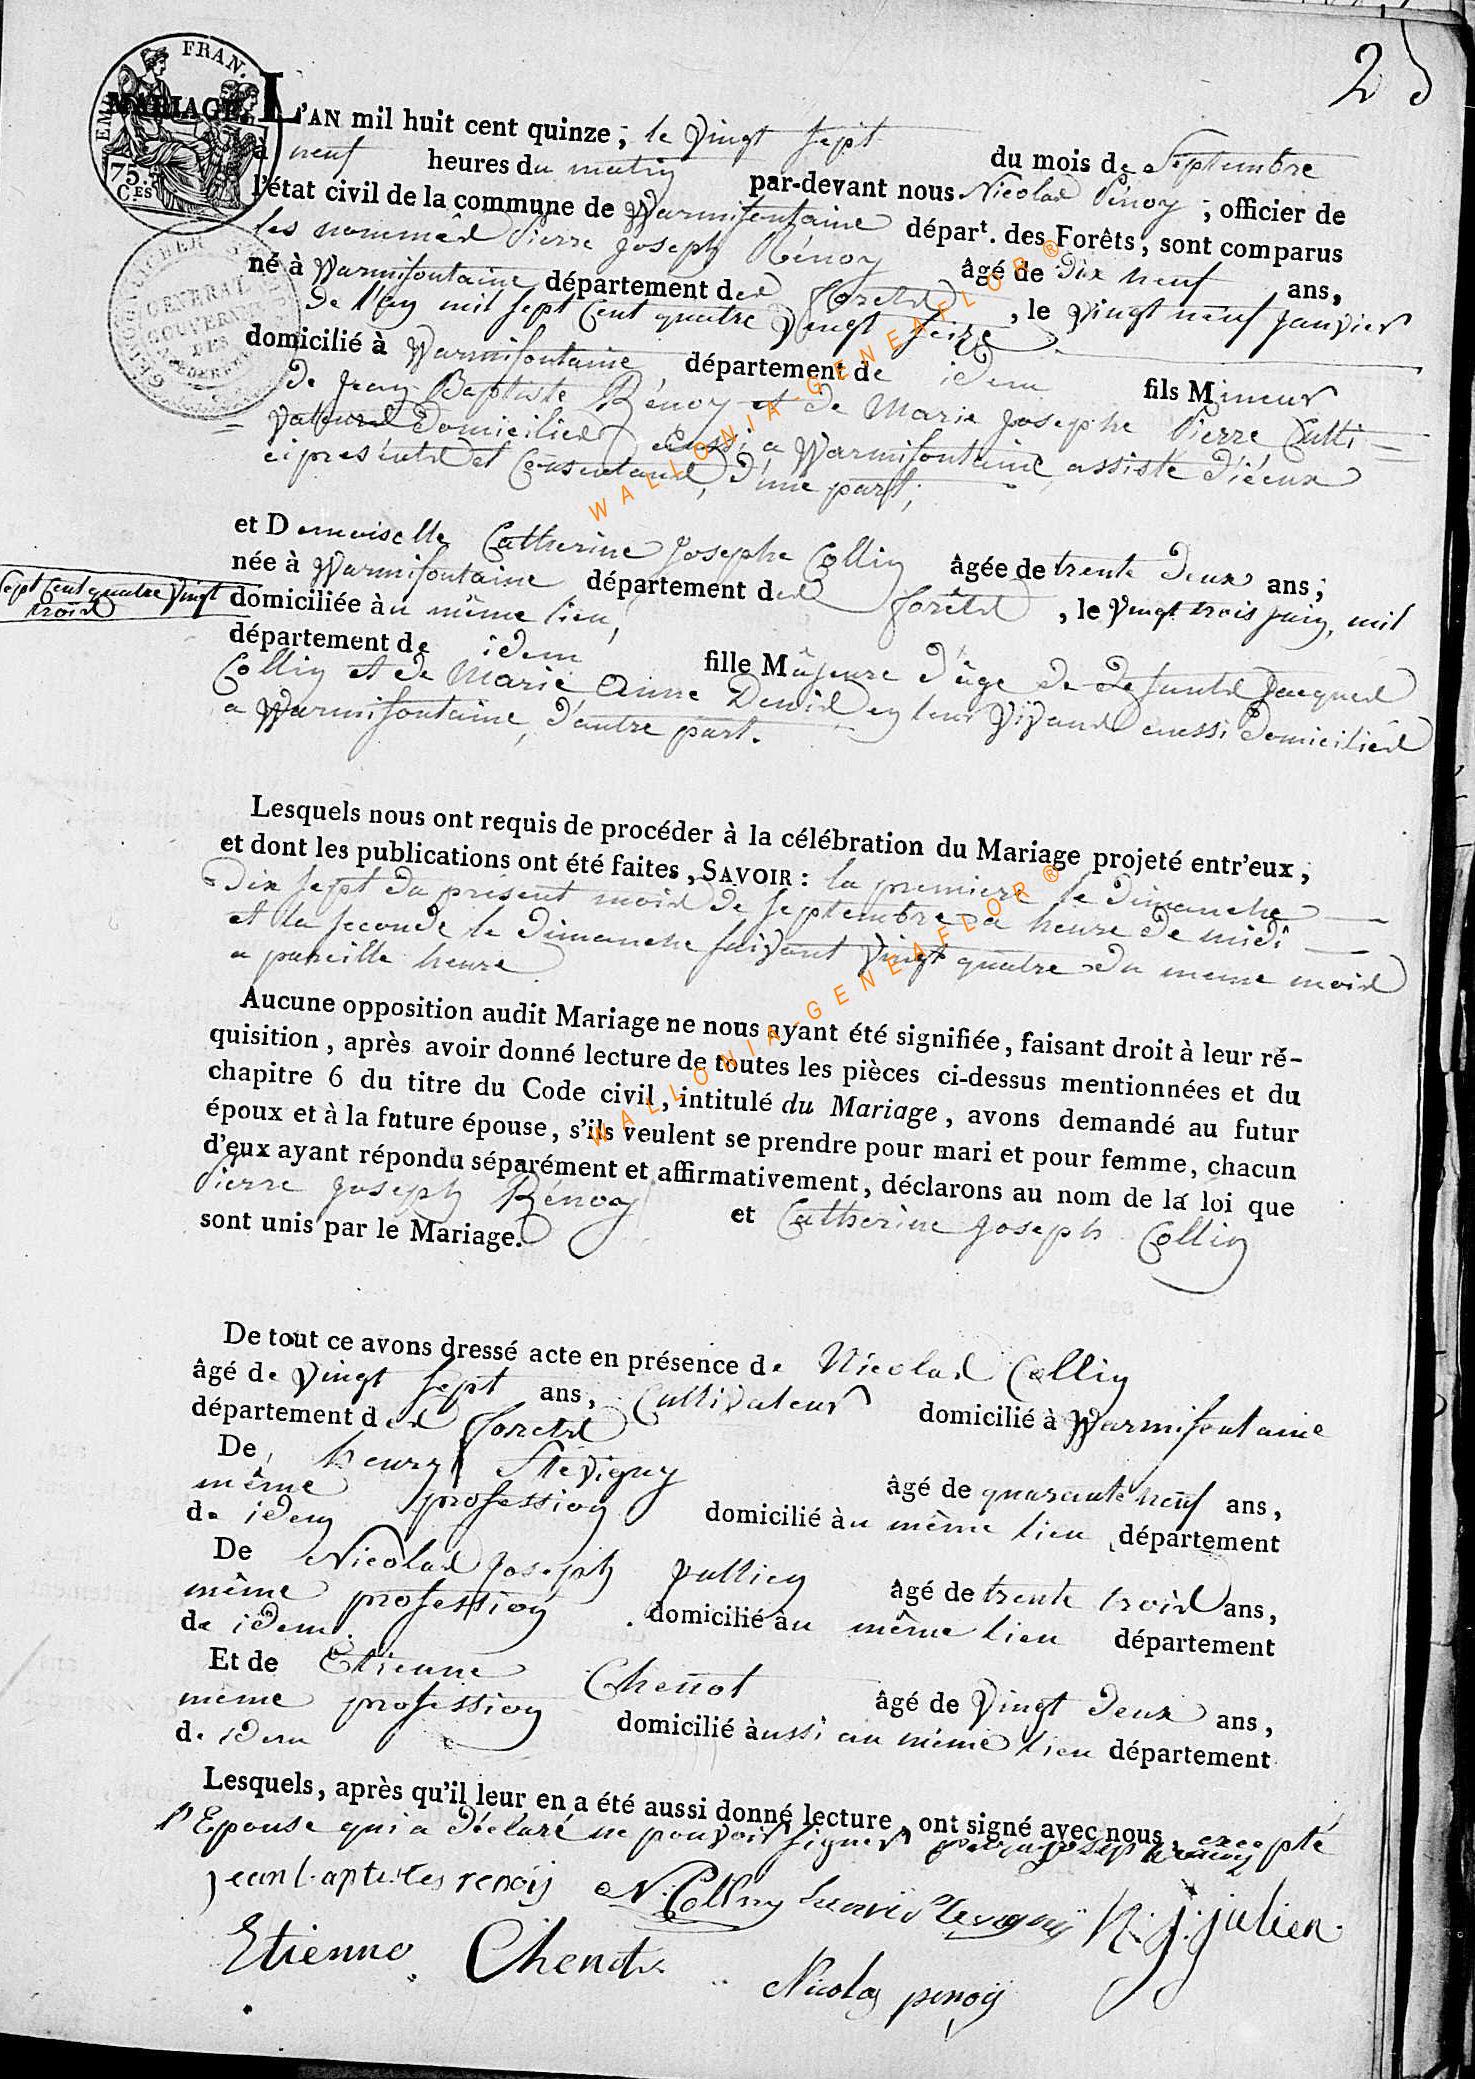 25
EMP. FRAN.
75. Ces
GENERAL GOUVERNEM
DES
MARIAGE. L'AN mil huit cent quinze, le vingt sept du mois de Septembre
à neuf heures du matin par-devant nous Nicolas Pénoy, officier de
l'état civil de la commune de Warmifontaine départ. des Forêts, sont comparus
les nommés Pierre Joseph Rénoy âgé de Dix neuf ans,
né à Warmifontaine département des forets, le vingt neuf janvier
de l'an mil sept Cent quatre vingt seize
domicilié à Warmifontaine département de idem fils Mineur
de Jean Baptiste Rénoy et de Marie Josephe Pierre Culti=
vateurs Domiciliés aussi a Warmifontaine assisté d'iceux
ci présents et Consentans, d'une part;
et Demoiselle Catherine Josephe Collin âgée de trente Deux ans;
née à Warmifontaine département des forêts, le vingt trois juin, mil
Sept Cent quatre vingt
trois
domiciliée àu même lieu,
département de idem fille Majeure d'âge de defunts Jacques
Collin et de Marie Anne Denis en leur vivans aussi Domiciliés
a Warmifontaine, d'autre part.
Lesquels nous ont requis de procéder à la célébration du Mariage projeté entr'eux,
et dont les publications ont été faites, SAVOIR: la premiere le dimanche
Dix Sept du présent mois de Septembre a heure de midi
et la seconde le Dimanche suivant vingt quatre du meme mois
a pareille heure
Aucune opposition audit Mariage ne nous ayant été signifiée, faisant droit à leur ré-
quisition, après avoir donné lecture de toutes les pièces ci-dessus mentionnées et du
chapitre 6 du titre du Code civil, intitulé du Mariage, avons demandé au futur
époux et à la future épouse, s'ils veulent se prendre pour mari et pour femme, chacun
d'eux ayant répondu séparément et affirmativement, déclarons au nom de la loi que
Pierre Joseph Rénoy et Catherine Joseph Collin
sont unis par le Mariage.
De tout ce avons dressé acte en présence de Nicolas Collin
âgé de vingt sept ans, Cultivateur domicilié à Warmifontaine
département des forets
De henry Stévigny âgé de quarante neuf ans,
même profession domicilié àu même lieu département
de idem
De Nicolas Joseph jullien âgé de trente trois ans,
même profession domicilié àu même lieu département
de idem.
Et de Etienne Chenot âgé de vingt deux ans,
meme profession domicilié àussi au même lieu département
de idem
Lesquels, après qu'il leur en a été aussi donné lecture, ont signé avec nous, excepté
l'Epouse qui a déclaré ne pouvoir signer
jean baptistes renoij N. Collin N. j. julien
Etienne Chenot Nicolas penoij
WALLONIA-GENEAFLOR®
WALLONIA-GENEAFLOR®